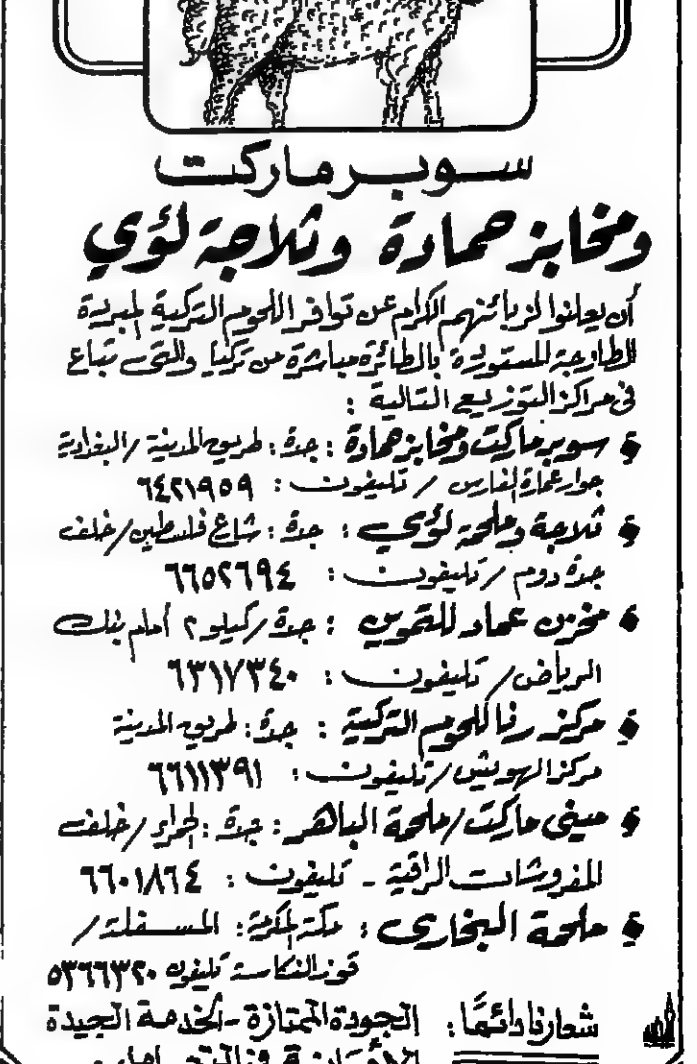 سوبر ماركت
ومخابز حمادة وثلاجة لؤي
أن يعلنوا لزبائنهم الكرام عن توافر اللحوم التركية المبردة
الطازجة المستوردة بالطائرة مباشرة من تركيا والتى تباع
فى مراكز التوزيع التالية :
سوبر ماركت ومخابز حمادة : جدة : طريق المدينة / البغدادية
جوار عمارة الفارس / تليفون : ٦٤٢١٩٥٩
ثلاجة وملحمة لؤي : جدة : شارع فلسطين / خلف
جدة دوم / تليفون : ٦٦٥٢٦٩٤
مخزن عماد للتموين : جدة / كيلو ٢ أمام بنك
الرياض / تليفون : ٦٣١٧٣٤٠
مركز رنا للحوم التركية : جدة : طريق المدينة
مركز الهويش / تليفون : ٦٦١١٣٩١
مينى ماركت / ملحمة الباهر : جدة : الحمراء / خلف
المفروشات الراقية - تليفون : ٦٦٠١٨٦٤
ملحمة البخارى : مكة المكرمة : المسفلة /
قوز النكاسة تليفون ٥٣٦٦٣٢٠
شعارنا دائمًا : الجودة الممتازة - الخدمة الجيدة